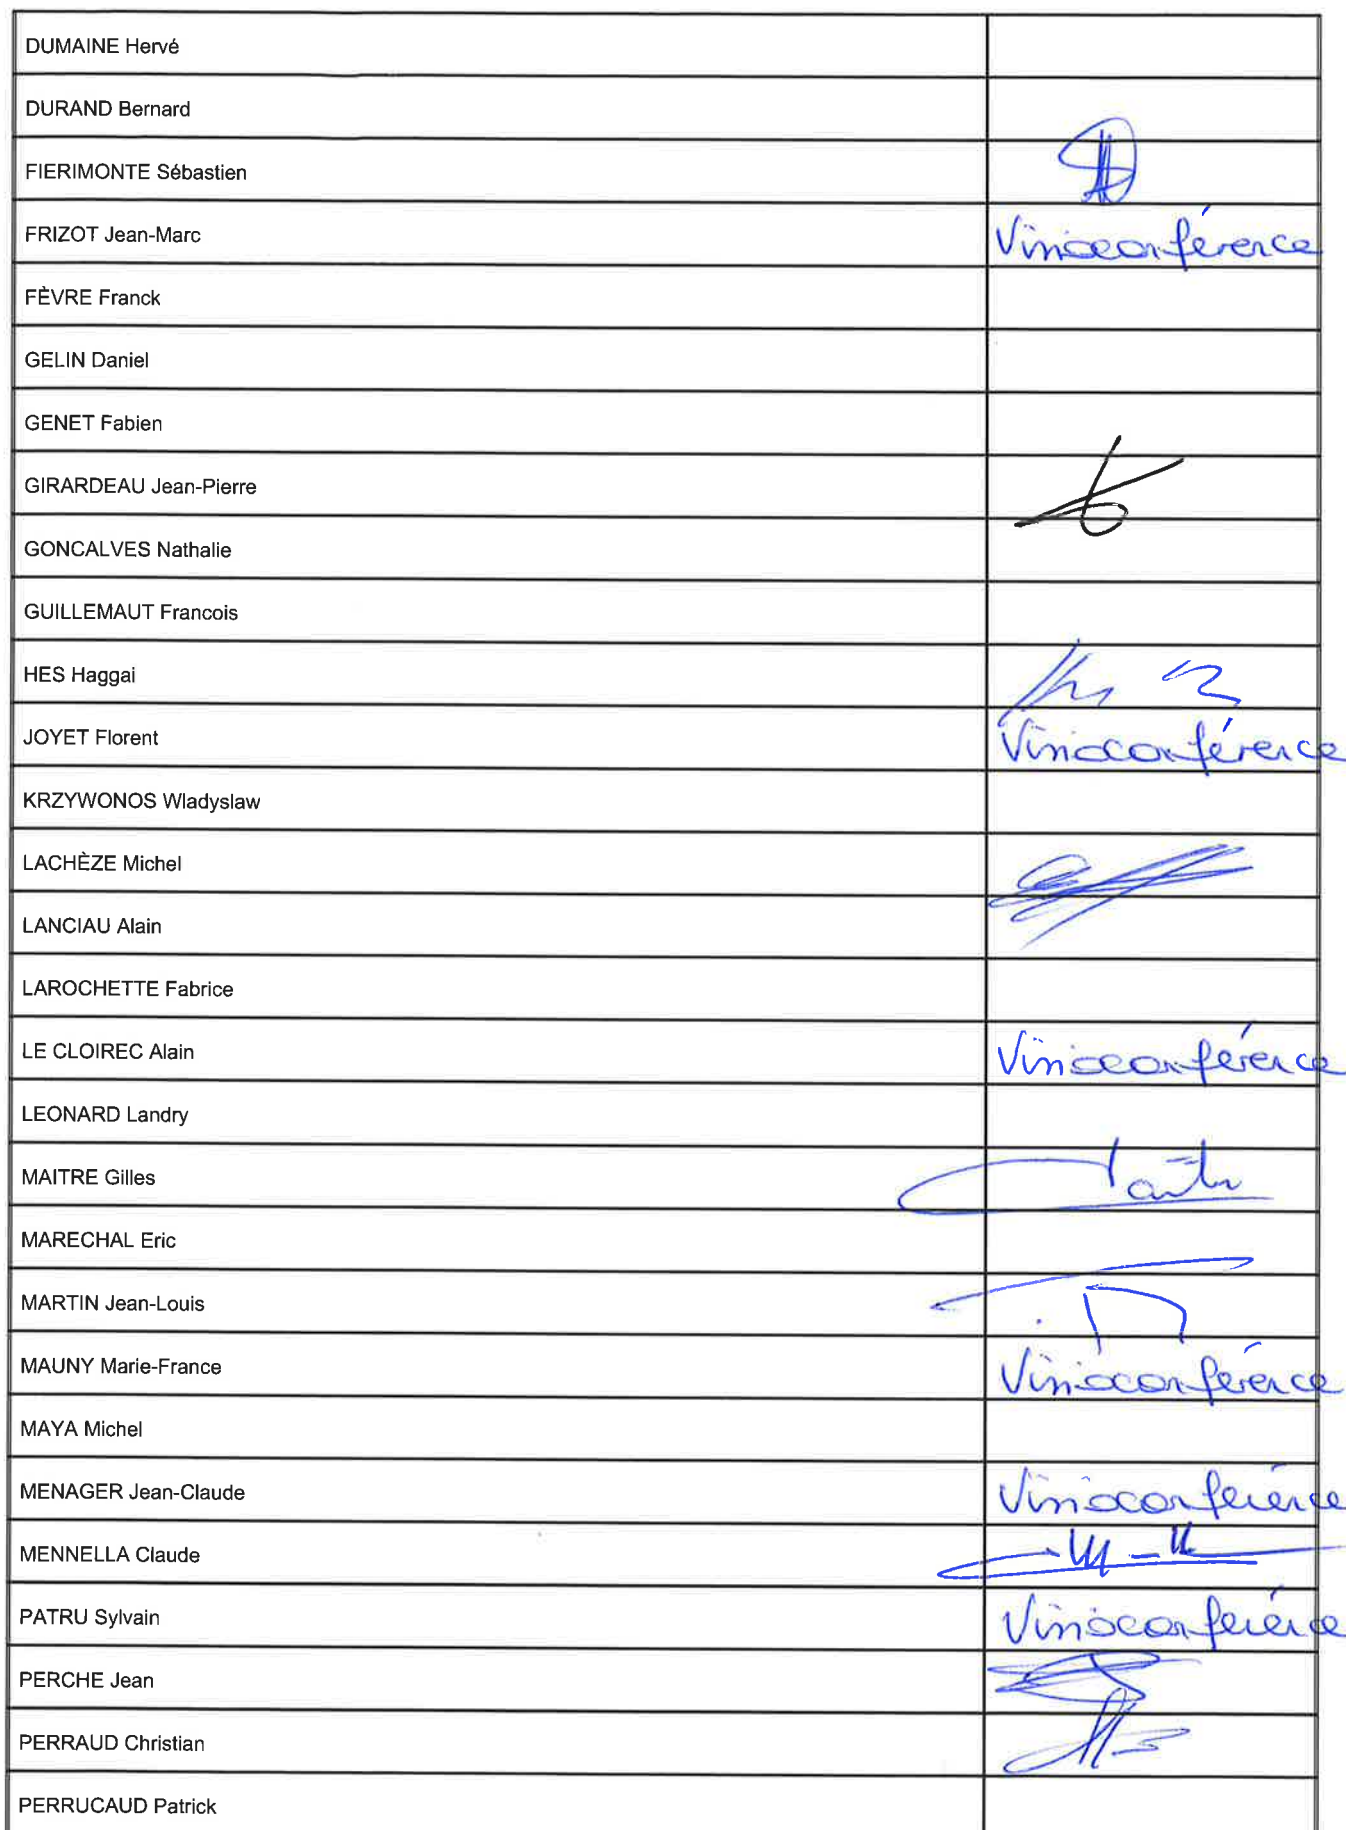 DUMAINE Hervé
DURAND Bernard
FIERIMONTE Sébastien
FRIZOT Jean-Marc Visioconférence
FÈVRE Franck
GELIN Daniel
GENET Fabien
GIRARDEAU Jean-Pierre
GONCALVES Nathalie
GUILLEMAUT Francois
HES Haggai
JOYET Florent Visioconférence
KRZYWONOS Wladyslaw
LACHÈZE Michel
LANCIAU Alain
LAROCHETTE Fabrice
LE CLOIREC Alain Visioconférence
LEONARD Landry
MAITRE Gilles
MARECHAL Eric
MARTIN Jean-Louis
MAUNY Marie-France Visioconférence
MAYA Michel
MENAGER Jean-Claude Visioconférence
MENNELLA Claude
PATRU Sylvain Visioconférence
PERCHE Jean
PERRAUD Christian
PERRUCAUD Patrick